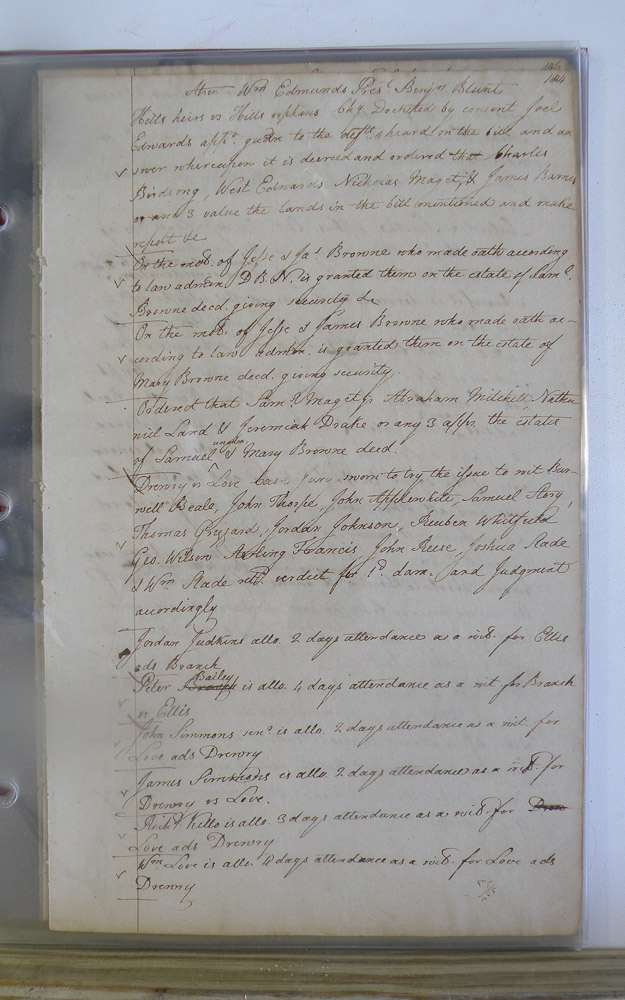 184
Aben Wm Edmunds Prest Benjn Blunt
Hills heirs vs Hills orphans Chy Docketed by consent Joel
Edwards appd. guдn to the defts. & heard on the bill and an
swer whereupon it is decreed and ordered that Charles
Birdsong, West Edwards Nicholas Maget, & James Barnes
or any 3 value the lands in the bill mentioned and make
report &c
On the mot. of Jesse & Jas. Browne who made oath according
to law admn. D.B.N. is granted them on the estate of Saml.
Browne decd. giving security &c
On the mot. of Jesse & James Browne who made oath ac-
cording to law admn. is granted them on the estate of
Mary Browne decd. giving security.
Ordered that Saml. Maget, Abraham Mitchell Natha
niel Land & Jeremiah Drake or any 3 appr. the estates
of Samuel & Mary Browne decd.
Drewry vs Love Case jury sworn to try the issue to wit Bur-
well Beale, John Thorpe, John Applewhite, Samuel
Thomas Gresard, Jordan Johnson, Reuben Whitfield
Geo. Wilson Francis, John Reese, Joshua Slade
& Wm Slade retd. verdict for 1d. dam. and Judgment
accordingly
Jordan Judkins allo. 2 days attendance as a wit. for Ellis
ads Branch
Peter Bailey is allo. 4 days attendance as a wit for Branch
vs Ellis
John Simmons senr. is allo. 2 days attendance as a wit. for
Love ads Drewry
James Simmons is allo. 2 days attendance as a wit. for
Drewry vs Love.
Richd. Kello is allo. 3 days attendance as a wit. for
Love ads Drewry
Wm Love is allo. 4 days attendance as a wit. for Love ads
Drewry